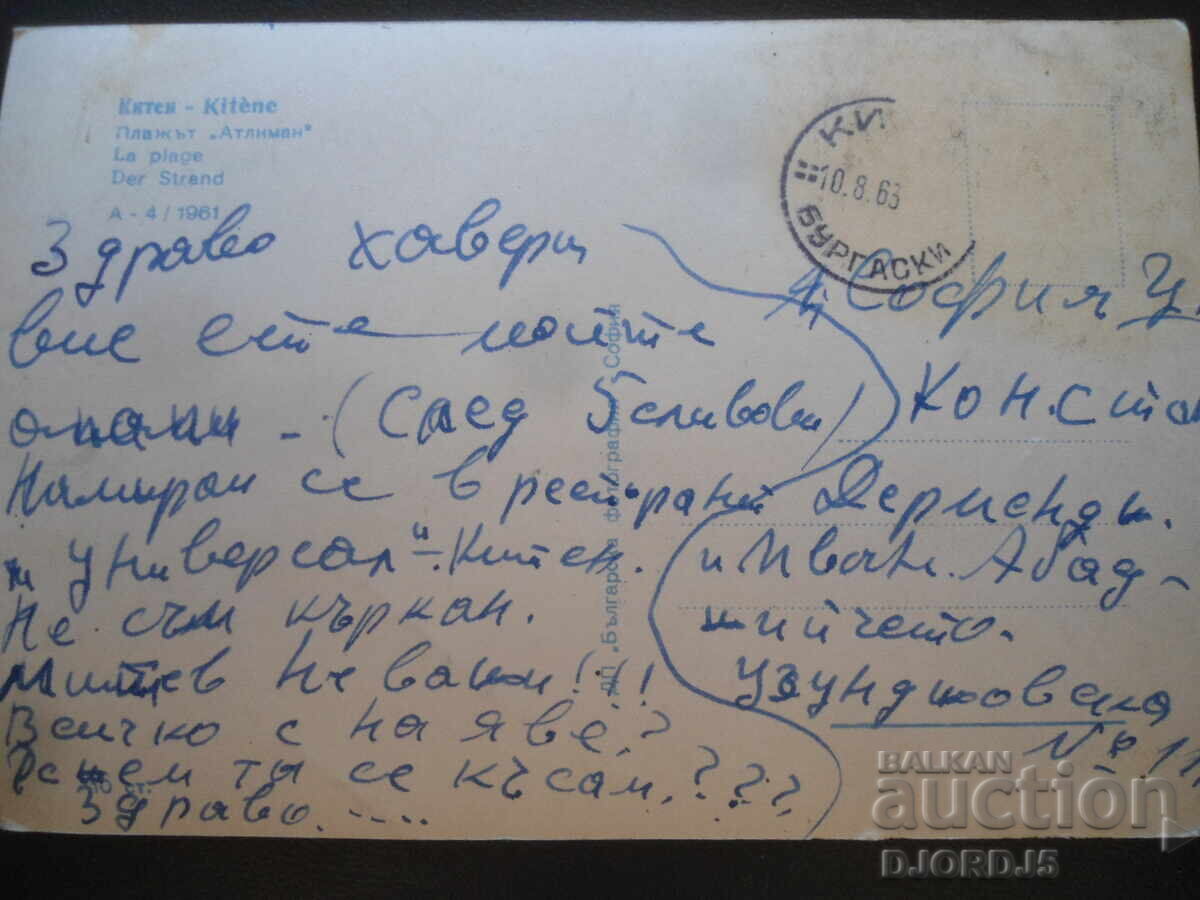 Китен - Kitène
Плажът „Атлиман"
La plage
Der Strand
А - 4 / 1961
Здраво хавери
вие сте моите
(След 5 сливови)
Намирам се в ресторант
"Универсал" - Китен.
Не съм къркан.
Митев не важи!!!
Всичко с на яве?
ты се късам.???
Здраво.....
ДП „Българска фотография" София
КИ
10.8.63
БУРГАСКИ
София
Конста
Дерменджи.
и Иван. Абад-
жийчето.
Узунджовска
№ 11
BALKAN
auction
DJORDJ5